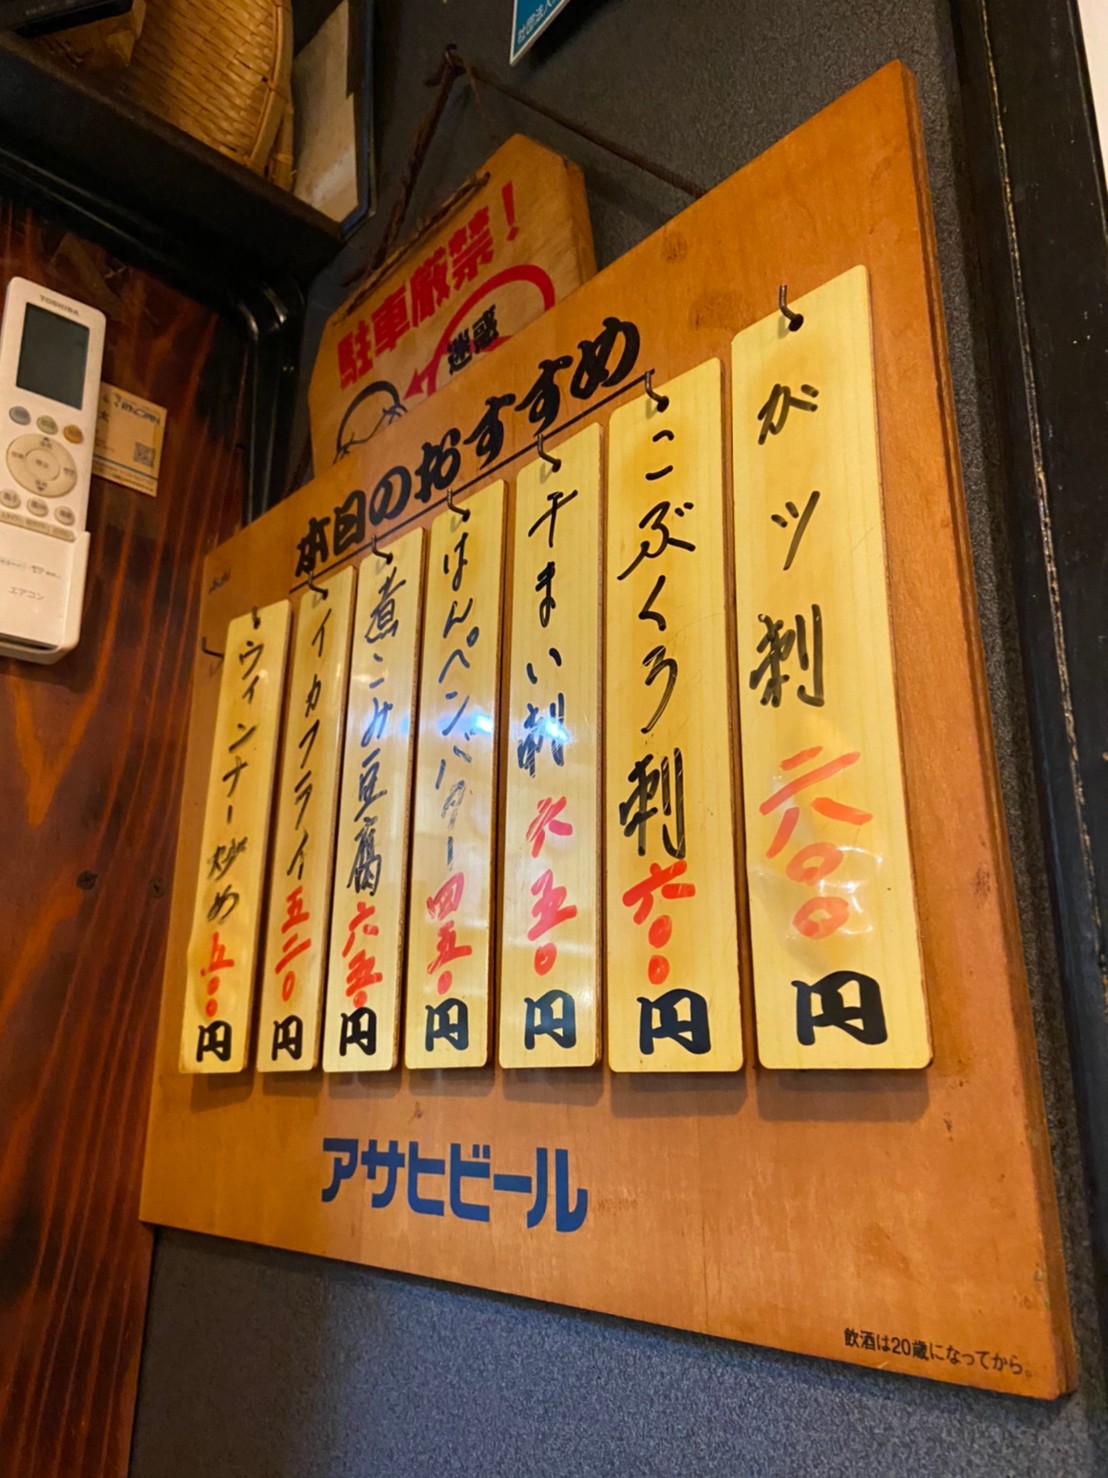 駐車厳禁!
迷惑
本日のおすすめ
ガツ刺 六〇〇円
こぶくろ刺 六〇〇円
千まい刺 六五〇円
はんぺんバター 四五〇円
煮こみ豆腐 六五〇円
イカフライ 五二〇円
ウィンナー炒め 五〇〇円
アサヒビール
飲酒は20歳になってから。
TOSHIBA
エアコン